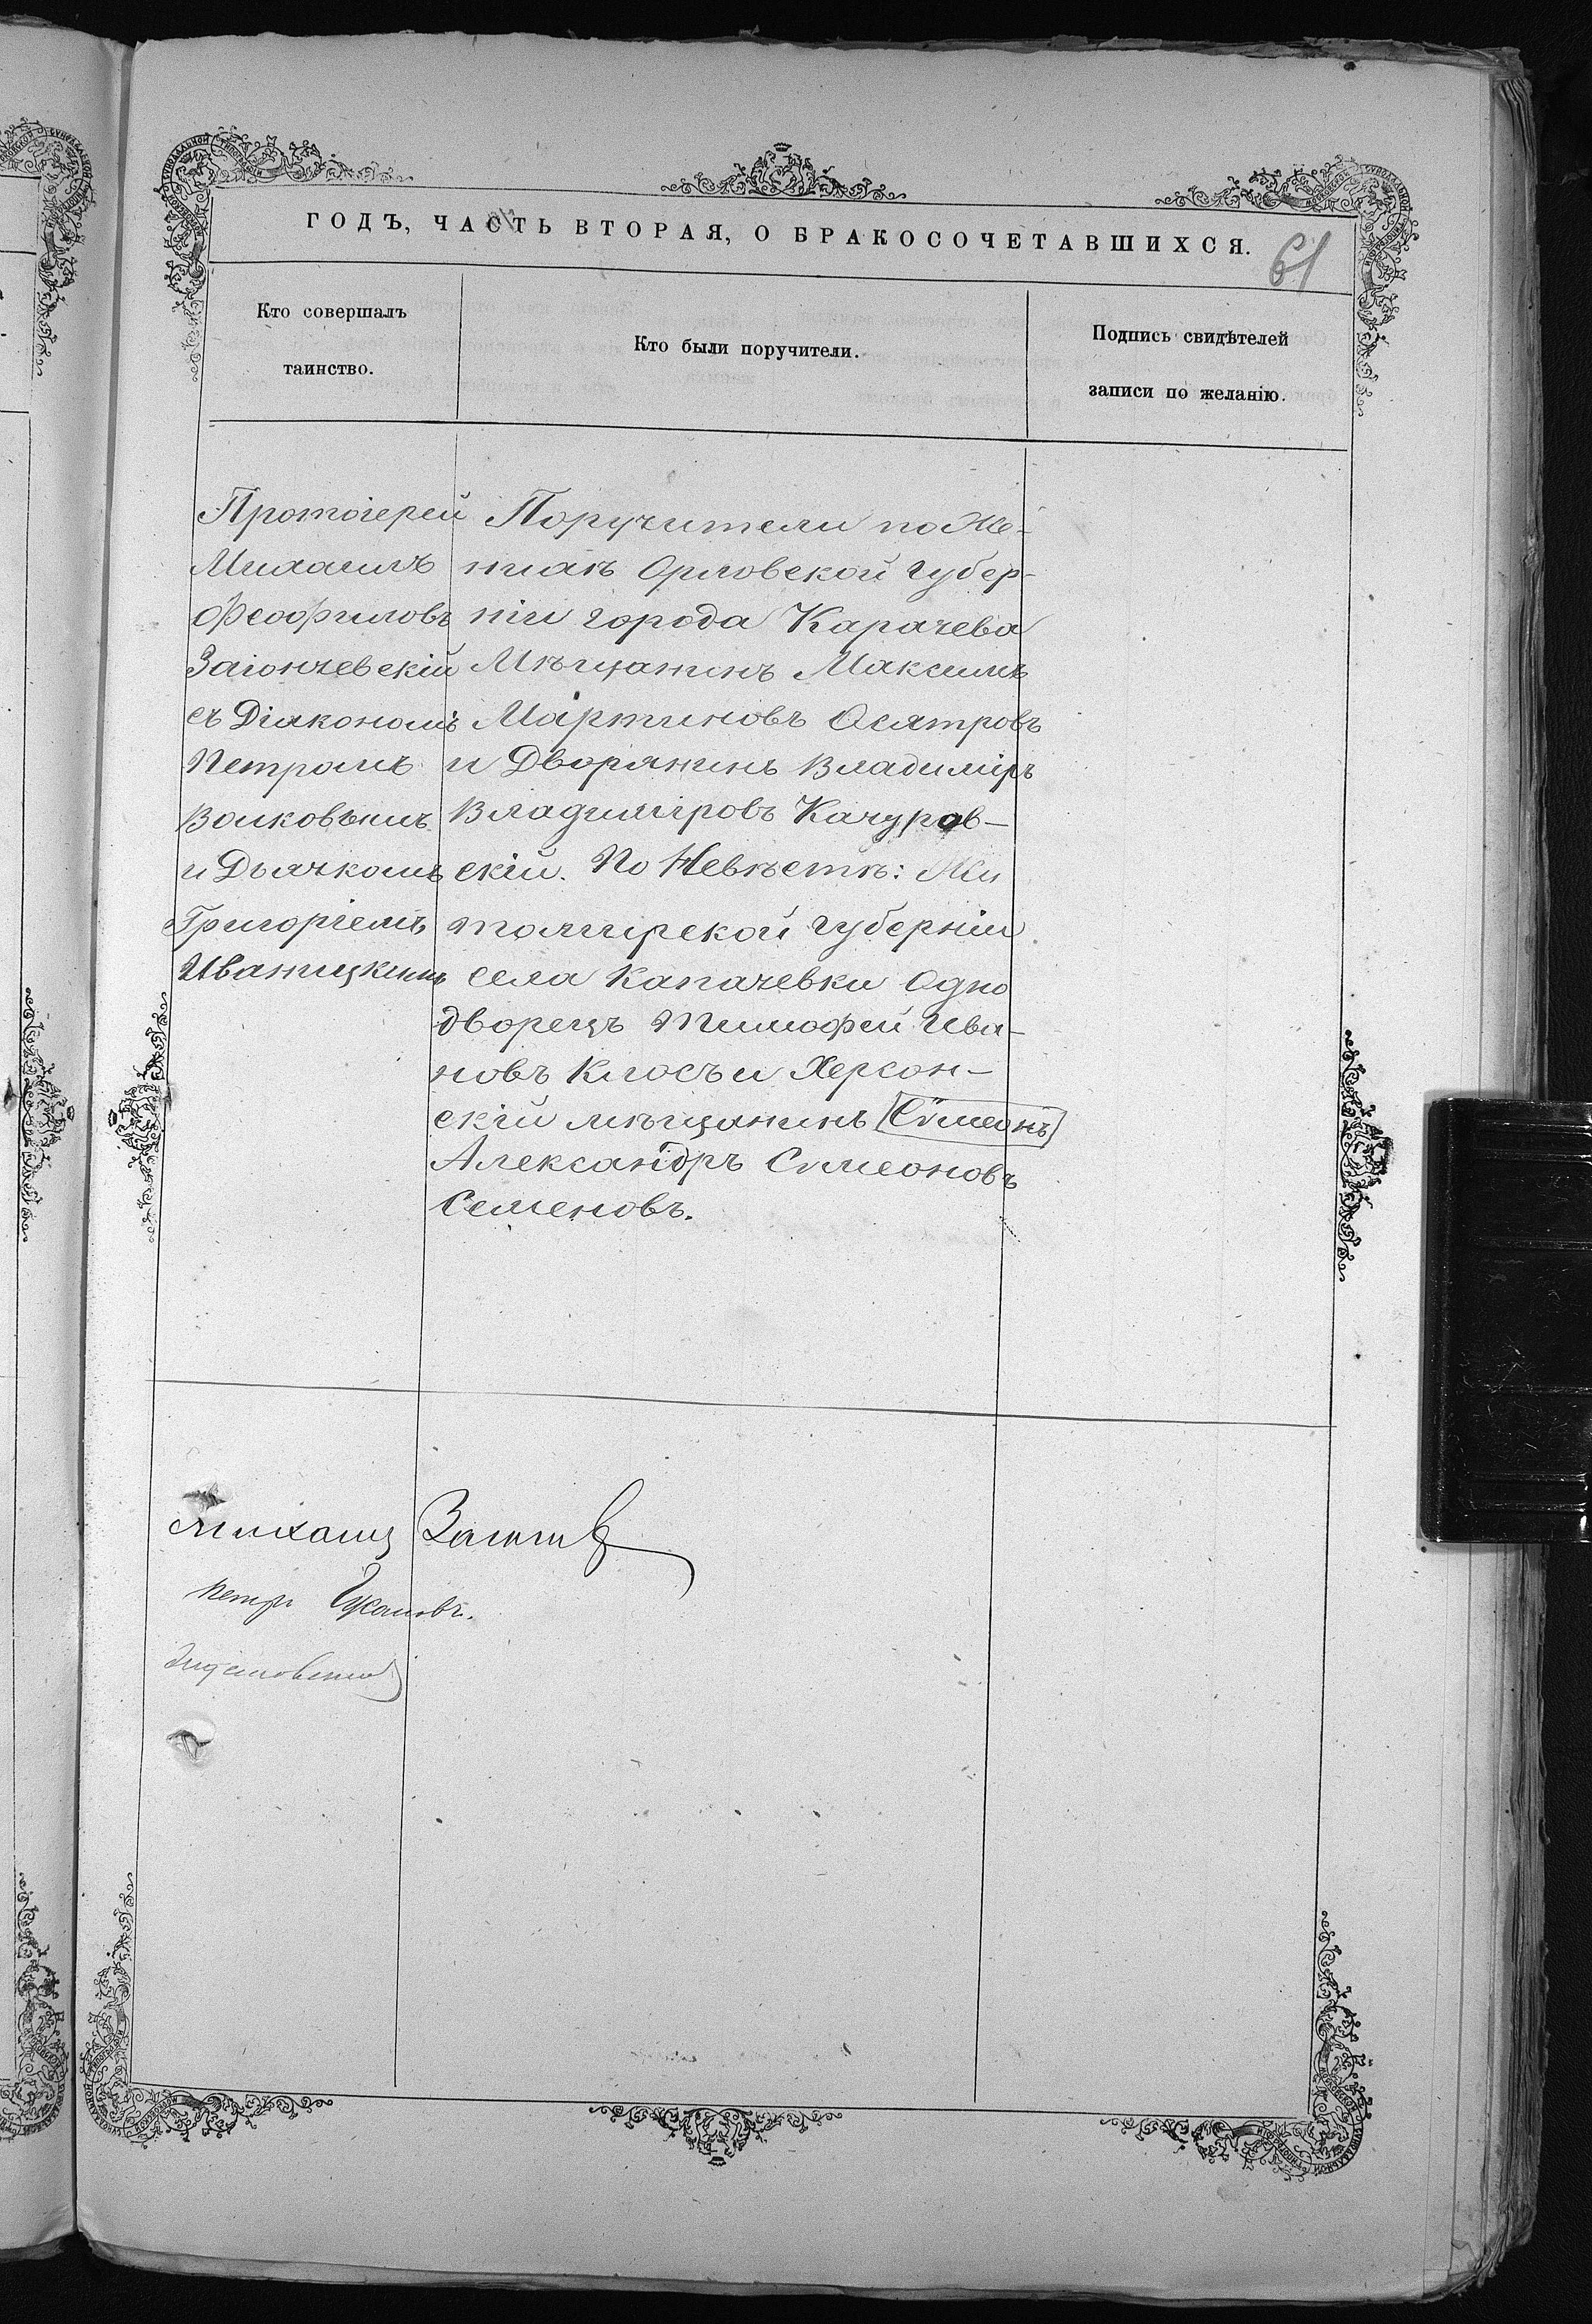 ГОДЪ, ЧАСТЬ ВТОРАЯ, О БРАКОСОЧЕТАВШИХСЯ.
61
Кто совершалъ
таинство.
Кто были поручители.
Подпись свидѣтелей
записи по желанію.
Протоіерей
Михаилъ
Феофиловъ
Заіончевскій
съ Діакономъ
Петромъ
Волковымъ
и Дьячкомъ
Григоріемъ
Иваницкимъ
Поручители по Же-
нихѣ Орловской Губер-
ніи города Карачева
Мѣщанинъ Максимъ
Мартиновъ Осятровъ
и Дворянинъ Владиміръ
Владиміровъ Качуров-
скій. По Невѣстѣ: Жи
томирской Губерніи
села Капачевки Одно
дворецъ Тимофей Ива-
новъ Клосъ и Херсон-
скій мѣщанинъ Симеонъ
Александръ Симеоновъ
Семеновъ.
Михаилъ
Петръ